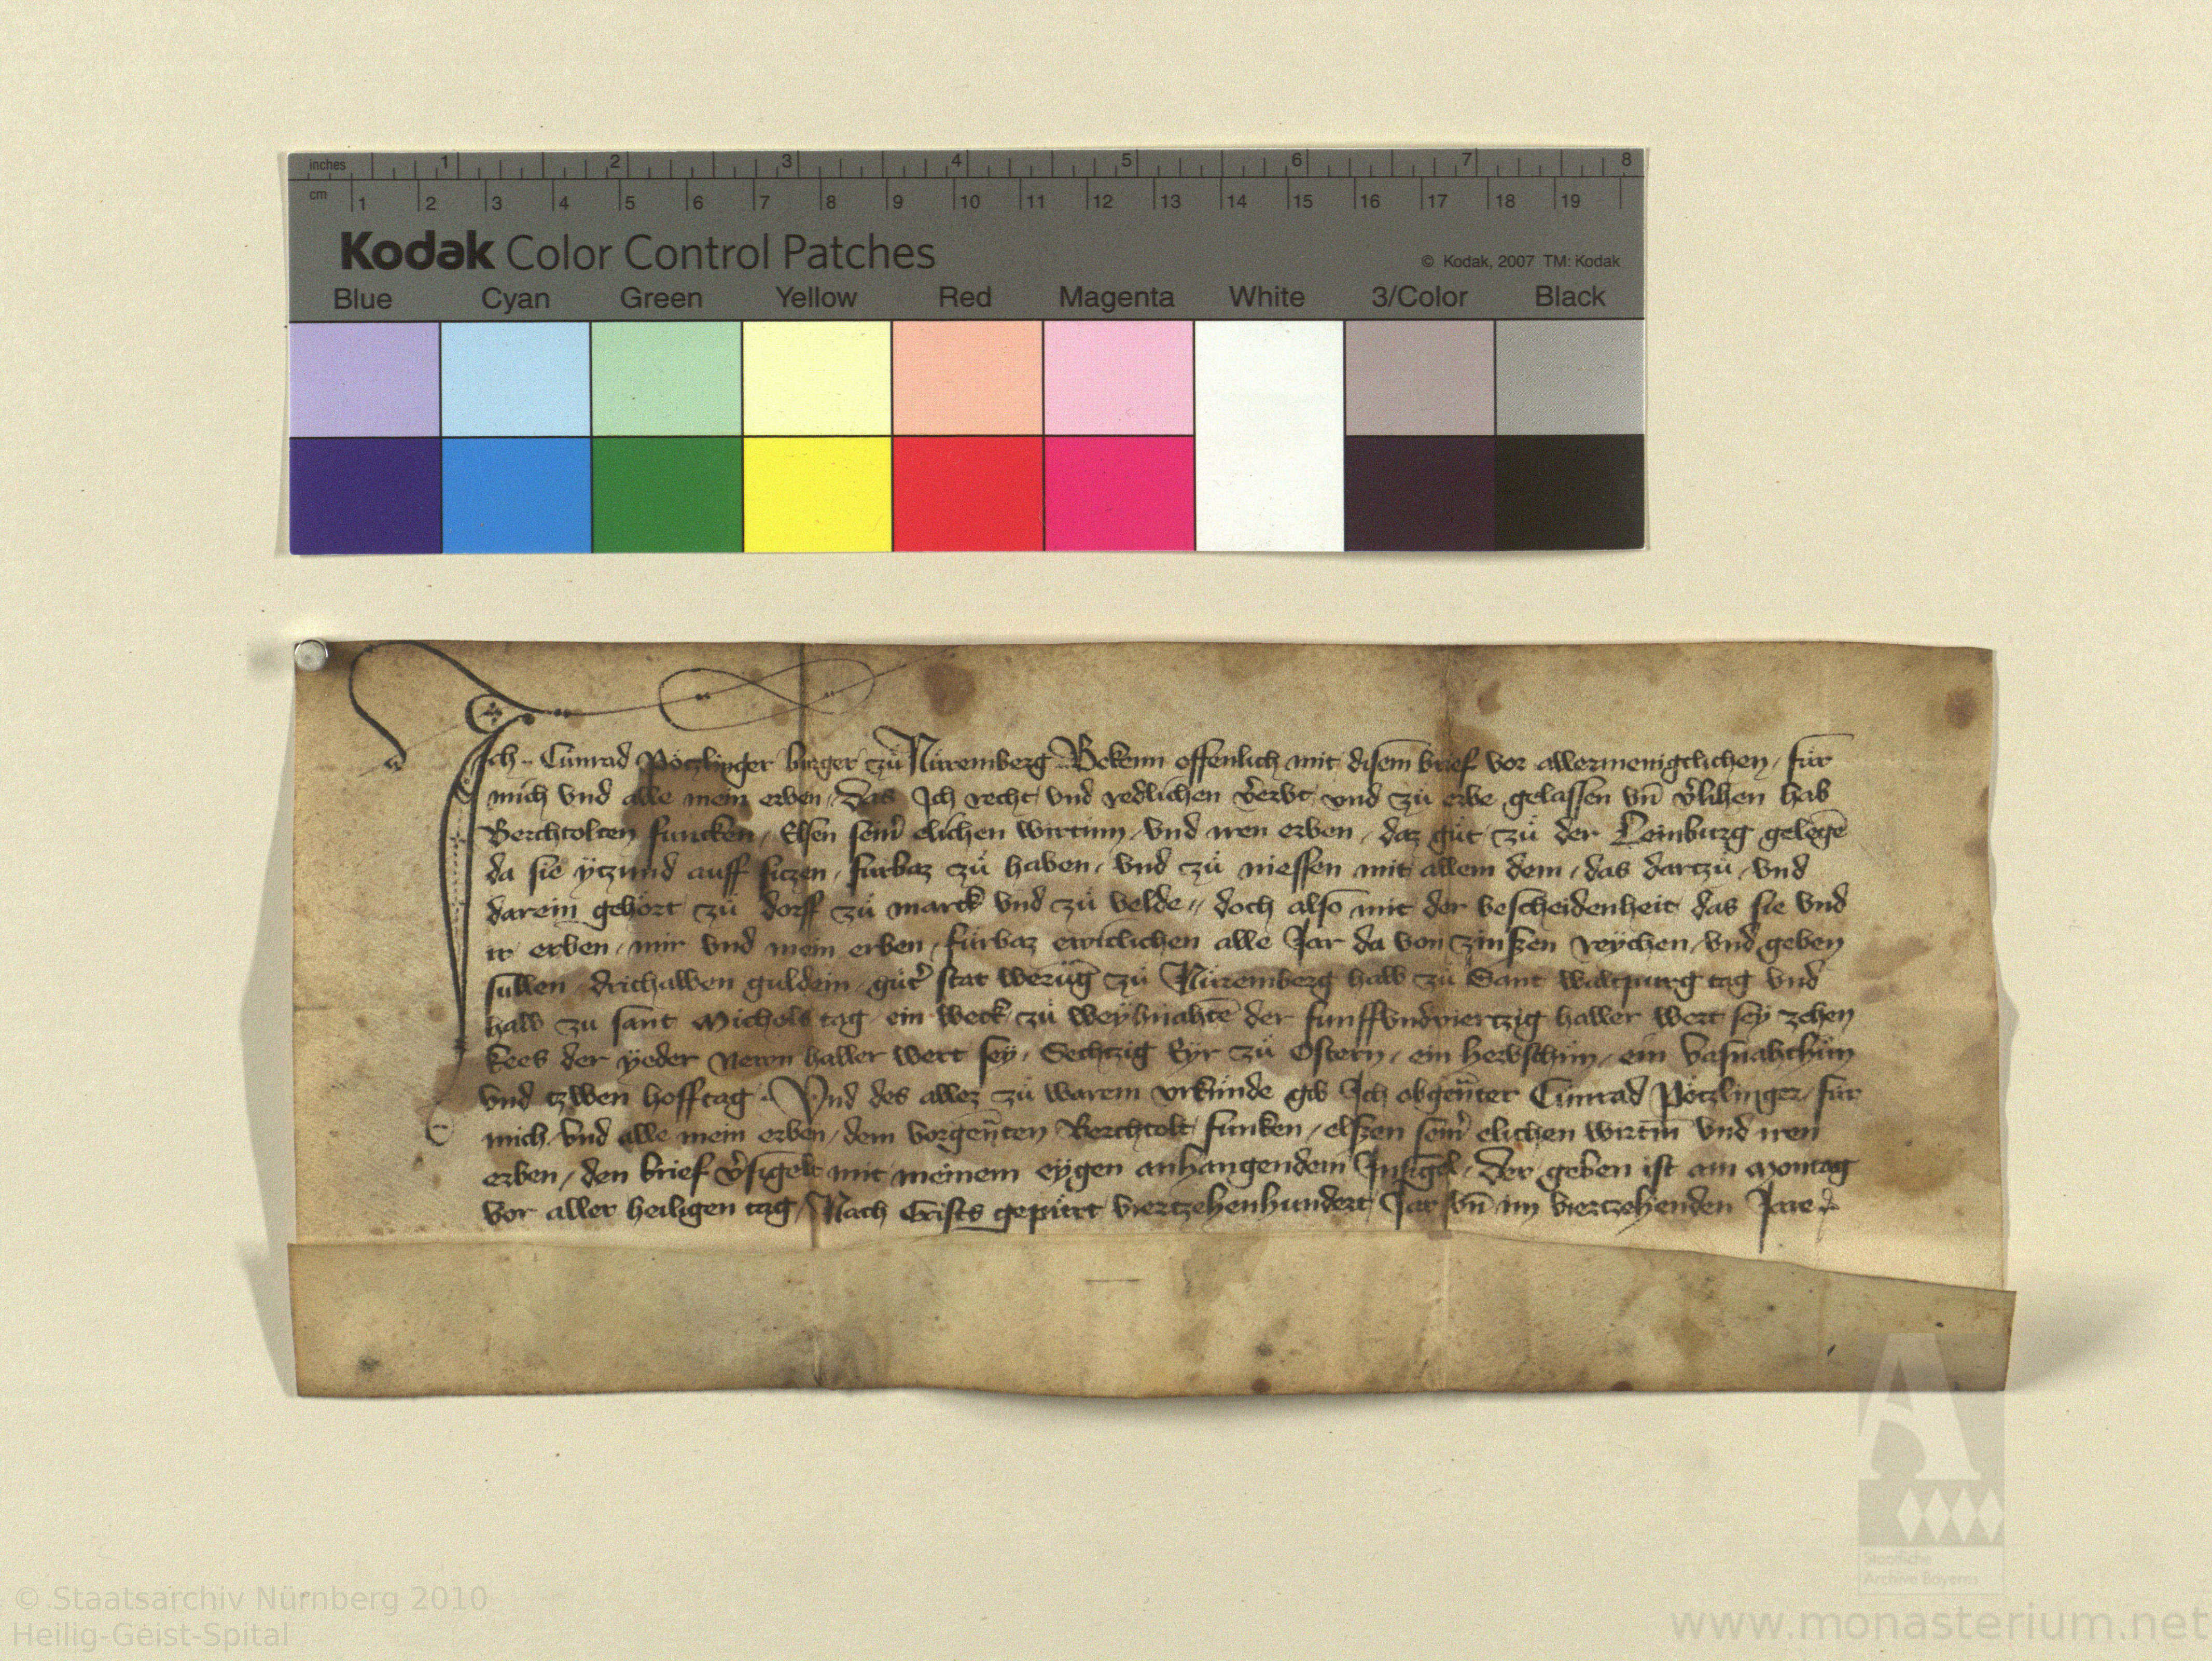 inches 1 2 3 4 5 6 7 8
cm 1 2 3 4 5 6 7 8 9 10 11 12 13 14 15 16 17 18 19
Kodak Color Control Patches
© Kodak, 2007 TM: Kodak
Blue Cyan Green Yellow Red Magenta White 3/Color Black
Ich Cunrad Pötzlinger burger zü Nüremberg Bekenn offenlich mit disem brief vor allermenigclichen / für
mich vnd alle mein erben / Das Ich recht vnd redlichen v̾erbt vnd zü erbe gelassen vn̄ v̾lihen hab
Berchtolten funcken / Elsen sein̾ elichen wirtinn / vnd iren erben / daz güt zü der Leinburg gelegē
da sie ytzund auff sitzen / fürbaz zü haben / vnd zü niessen mit allem dem / das dartzü / vnd
darein gehört zü dorff zü marck vnd zü velde // doch also mit der bescheidenheit das sie vnd
ir erben / mir vnd mein erben / fürbaz ewiclichen alle Jar da von zinszen reychen / vnd geben
süllen guldein güt̾ stat werūg zü Nüremberg halb zü Sant waltpurg tag vnd
halb zu sant Michels tag ein weck zü weyhnahtē der funffvndviertzig haller wert sey zehen
kees der yeder Newn haller wert sey / Sechtzig Eyr zü Ostern / ein herbsthün / ein vasnahthün
vnd tzwen hofftag Vnd des allez zü warem vrkünde gib Ich obgen̄ter Cünrad Pötzlinger / für
mich vnd alle mein erben / dem vorgen̄ten Berchtolt funken / elszen sein̾ elichen wirtin̄ vnd iren
erben / den brief v̾sigelt mit meinem eygen anhangendem Insigel / Der geben ist am Montag
vor aller heiligen tag / Nach Crists gepürt viertzehenhundert Jar vn̄ im viertzehenden Jare
© Staatsarchiv Nürnberg 2010
Heilig-Geist-Spital
Staatliche
Archive Bayerns
www.monasterium.net